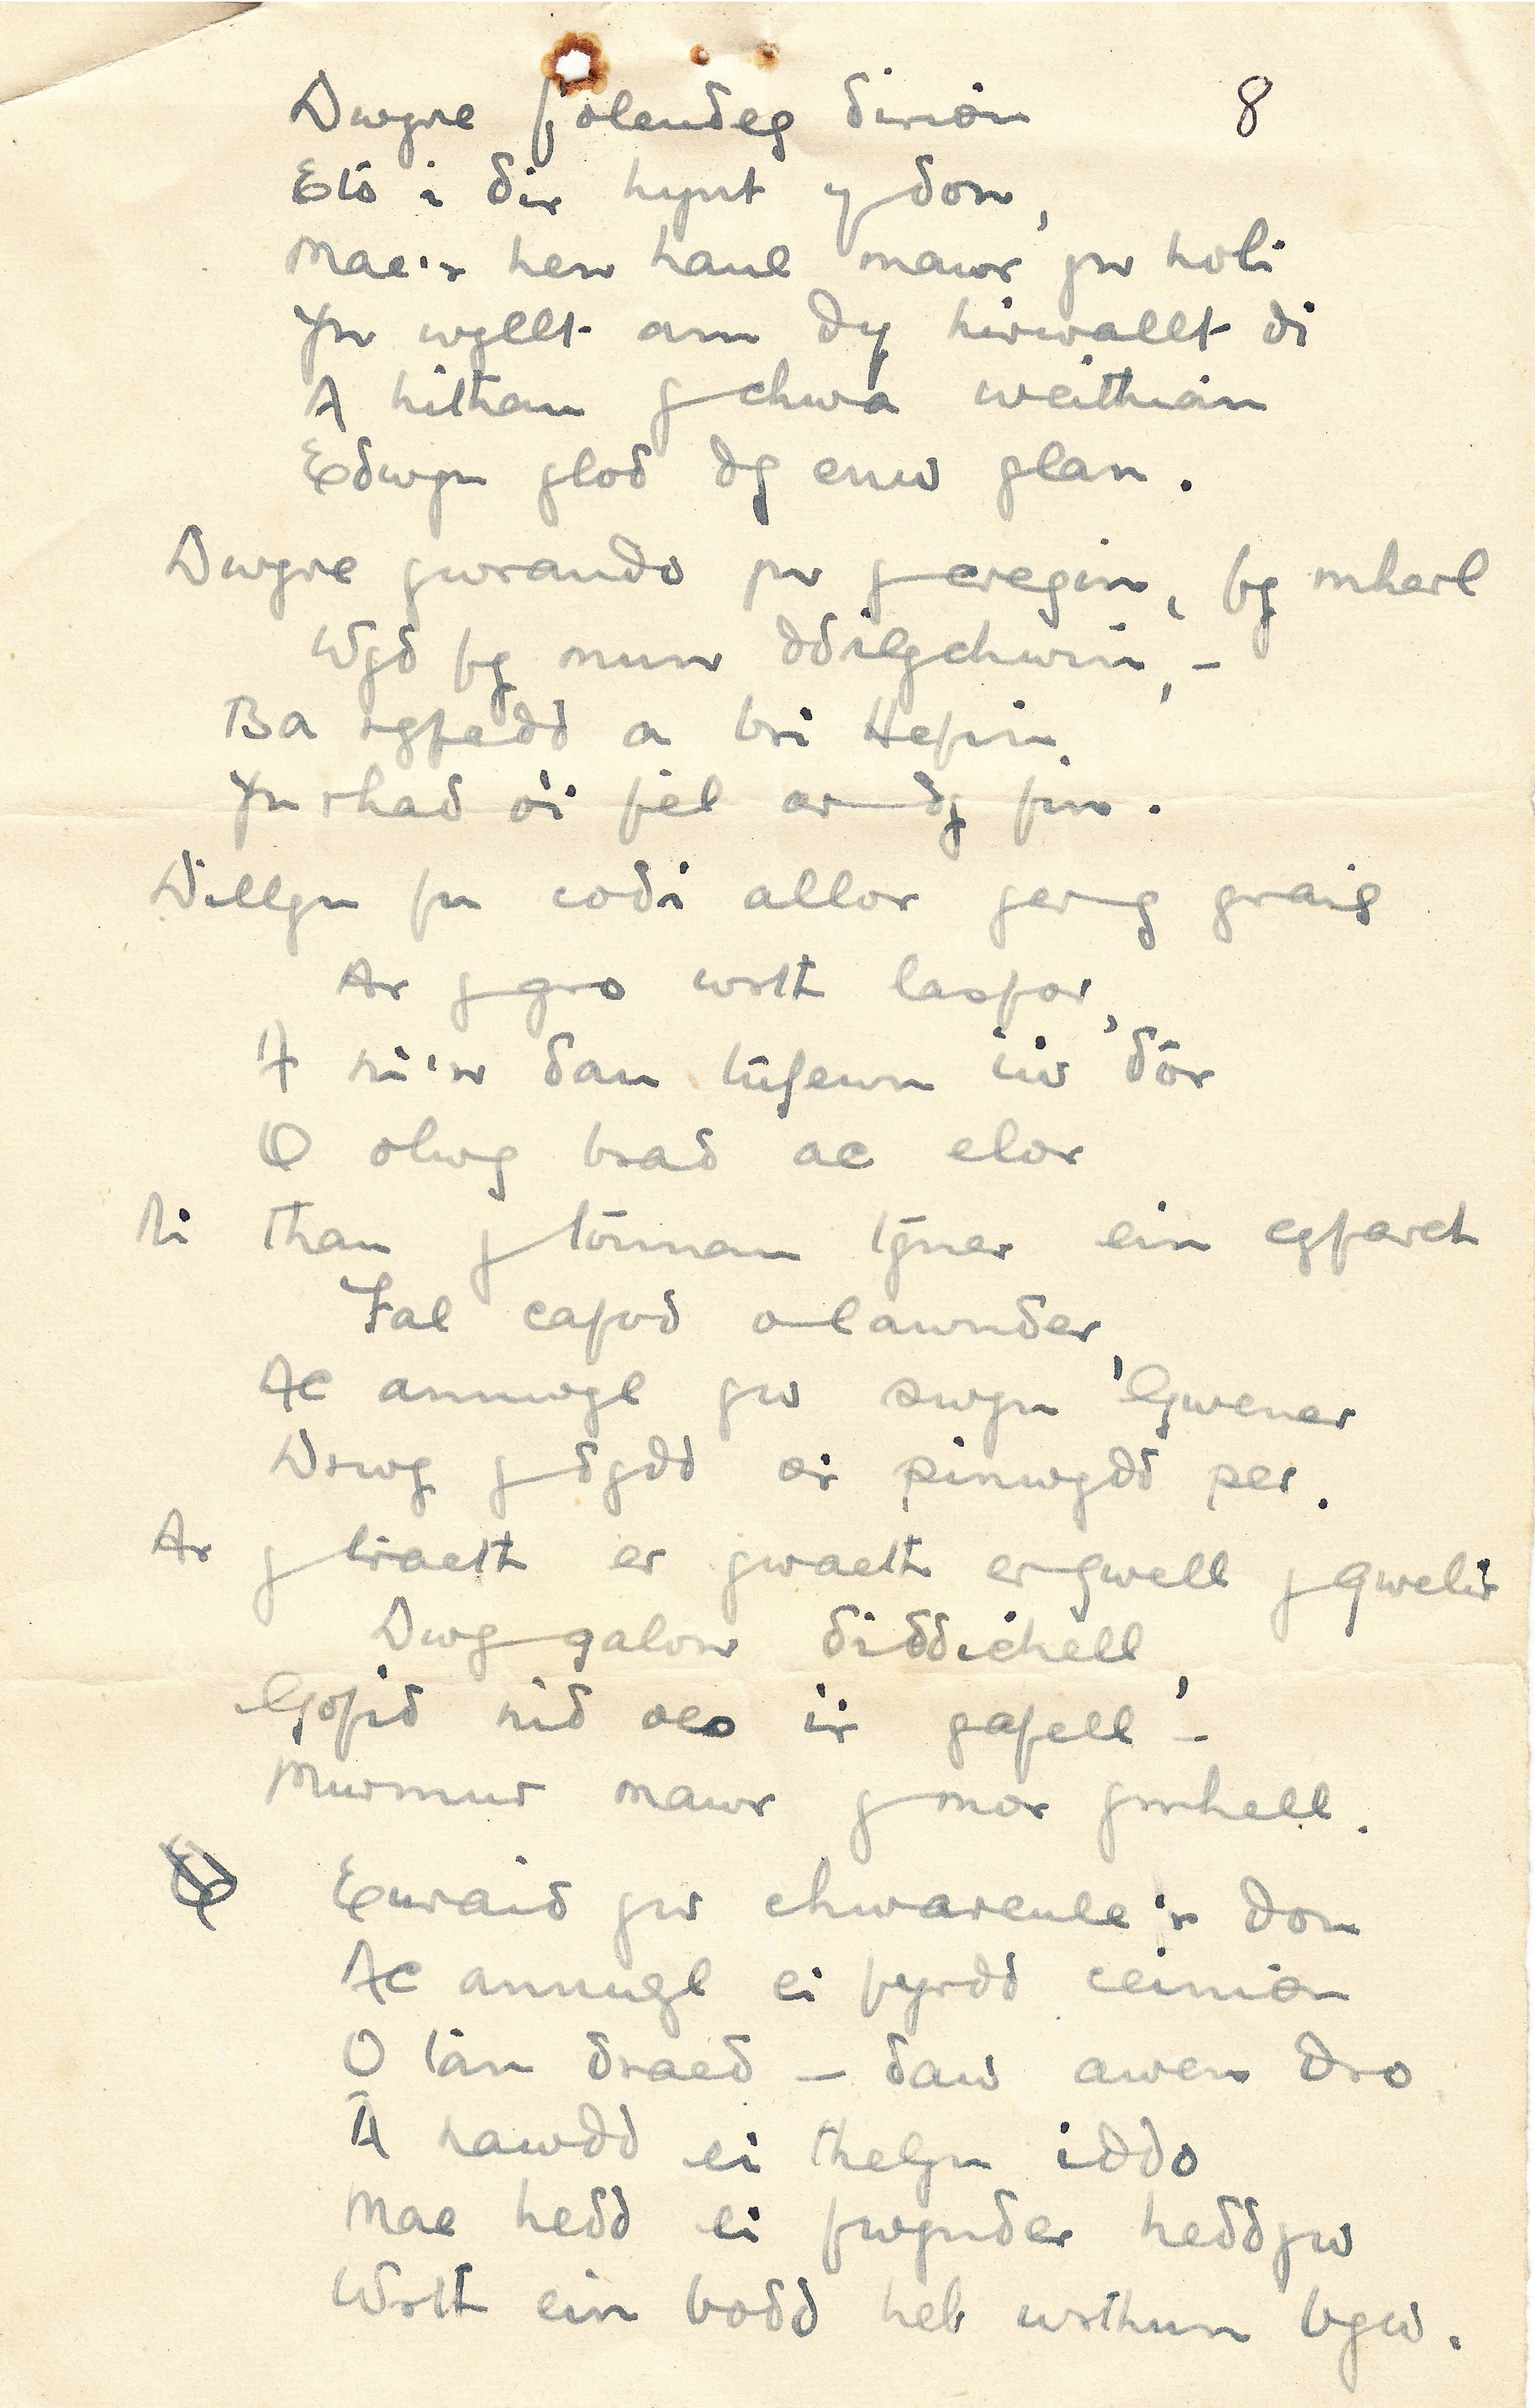 Dwyre folendeg dirion 8
Eto i dir hynt y don,
Mae'r hen haul mawr yn holi
Yn wyllt am dy hirwallt di
A hithau y chwa weithian
Edwyn glod dy enw glan.
Dwyre gwrando yn y eregin, fy mherl
Wyd fy mun ddilychwin, -
Ba ryfedd a bri Hefin
Yn rhad o'i fel ar dy fin.
Dillyn fu codi allor gerrig graig
Ar y gro wrth lasfor,
A ni'n dau tufewn iw dôr
O olwg brad ac elor
Ni thau y tonnau tyner ein cyfarch
Fal cafod o lawnder,
Ac annwyl yw swyn Gwener
Drwy y dydd a'i pinwydd per.
Ar y traeth er gwaeth er gwell y gwelir
Dwy galon diddichell,
Gofid nid oes i'r gafell -
Murmur mawr y mor ymhell.
Euraid yw chwareule'r don
Ac annwyl ei fyrdd ceinion
O tan draed - daw awen dro
A hawdd ei thelyn iddo
Mae hedd ei fwynder heddyw
Wrth ein bodd heb wrthun byw.